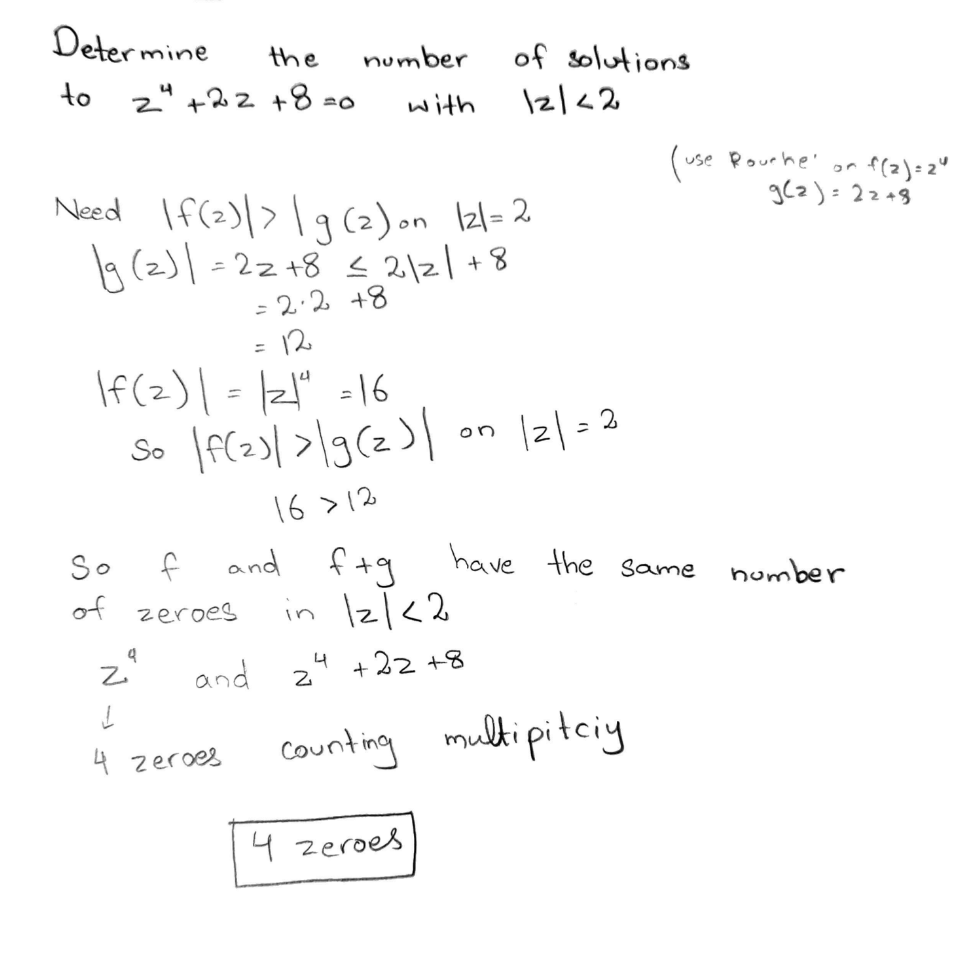 Determine the number of solutions
to z⁴ +2z +8 =0 with |z|<2
(use Rouche' on f(z)=z⁴
g(z) = 2z+8
Need |f(z)|> |g(z) on |z|=2
|g(z)| = 2z+8 ≤ 2|z| +8
= 2·2 +8
= 12
|f(z)| = |z|⁴ =16
So |f(z)|>|g(z)| on |z|=2
16 >12
So f and f+g have the same number
of zeroes in |z|<2
z⁴ and z⁴ +2z +8
↓
4 zeroes counting multipitciy
4 zeroes